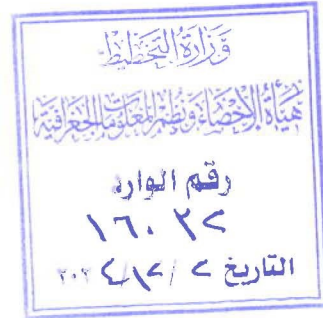 وزارة التخطيط
هيأة الإحصاء ونظم المعلومات الجغرافية
رقم الوارد
١٦٠٢٢
التاريخ ٢ / ١٢ / ٢٠٢٤